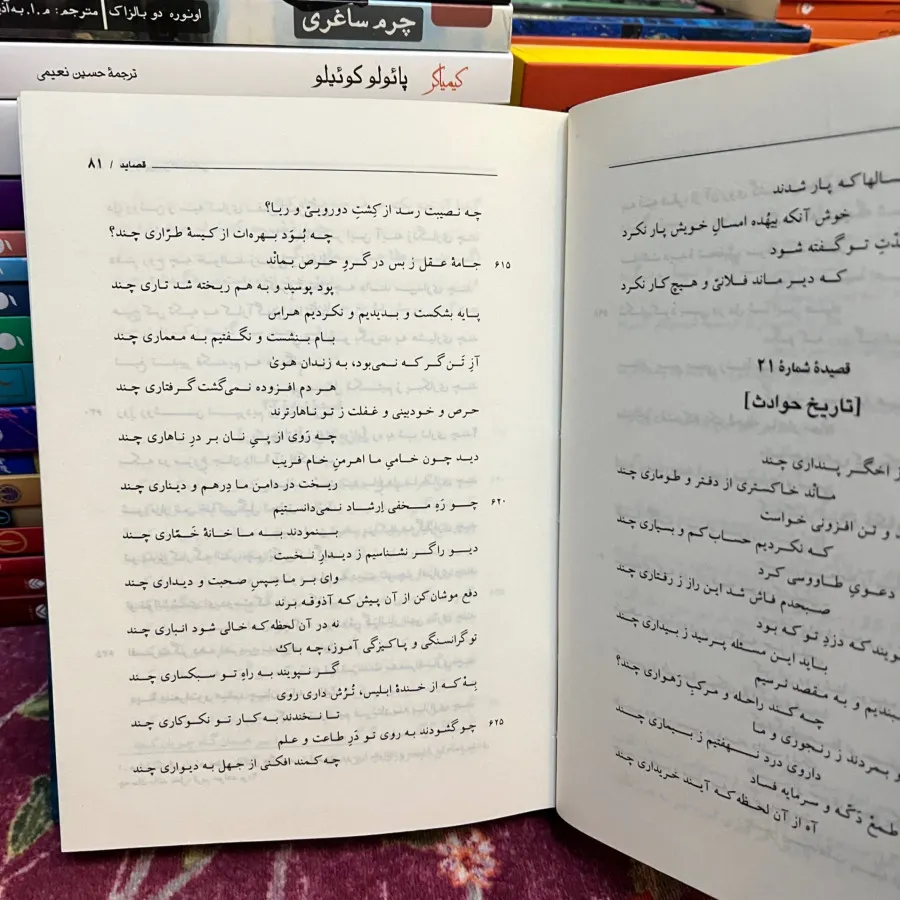 اونوره دو بالزاک | مترجم: م.ا.به‌آذ
چرم ساغری
ترجمهٔ حسین نعیمی
پائولو کوئیلو
کیمیاگر
سالها که پار شدند
خوش آنکه بیهُده امسالِ خویش پار نکرد
تو گفته شود
که دیر ماند فلانیّ و هیچ کار نکرد
قصیدهٔ شمارهٔ ۲۱
[تاریخ حوادث]
اخگرِ پنداری چند
مانْد خاکستری از دفتر و طوماری چند
و تن افزونی خواست
که نکردیم حساب کم و بسیاری چند
دعویِ طاووسی کرد
صبحدم فاش شد این راز ز رفتاری چند
که دزدِ تو که بود
باید این مسئله پرسید ز بیداری چند
و به مقصد نرسیم
چه کند راحله و مرکبِ رَهواری چند؟
بمردند ز رنجوری و ما
داروی درد نهفتیم ز بیماری چند
طمعْ دَکّه و سرمایه فساد
آه از آن لحظه که آیند خریداری چند
قصاید / ۸۱
چه نصیبت رسد از کِشتِ دوروییّ و ریا؟
چه بُوَد بهره‌ات از کیسهٔ طرّاری چند؟
جامهٔ عقل ز بس در گروِ حرص بمانْد ۶۱۵
پود پوسید و به هم ریخته شد تاری چند
پایه بشکست و بدیدیم و نکردیم هراس
بام بنشست و نگفتیم به معماری چند
آزِ تَن گر که نمی‌بود، به زندان هویٰ
هر دم افزوده نمی‌گشت گرفتاری چند
حرص و خودبینی و غفلت ز تو ناهارترند
چه رَوی از پیِ نان بر درِ ناهاری چند
دید چون خامیِ ما اهرمنِ خام فریب
ریخت در دامنِ ما دِرهم و دیناری چند
چو رَهِ مخفی اِرشاد نمی‌دانستیم ۶۲۰
بنمودند به ما خانهٔ خَمّاری چند
دیو را گر نشناسیم ز دیدارِ نخست
وای بر ما سپسِ صحبت و دیداری چند
دفع موشان کن از آن پیش که آذوقه برند
نه در آن لحظه که خالی شود انباری چند
تو گرانسنگی و پاکیزگی آموز، چه باک
گر نپویند به راهِ تو سبکساری چند
بِهْ که از خندهٔ ابلیس، تُرُش داری روی
تا نخندند به کار تو نکوکاری چند
چو گشودند به روی تو دَرِ طاعت و علم ۶۲۵
چه کمند افکنی از جهل به دیواری چند